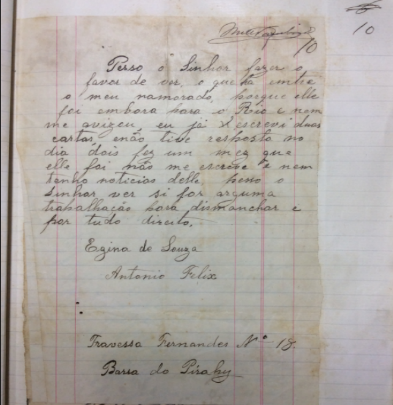 10
10
Peso o Senhor fazer o
favor de ver, o que ha entre
o meu namorado, porque elle
foi embora para o Rio e nem
me avizou eu já escrevi duas
cartas e não tive resposta no
dia dois fez um mez que
elle foi não me escreve e nem
tenho noticias delle peso o
Senhor ver si for arguma
trabalhação para dismanchar e
por tudo direito.
Egina de Souza
Antonio Felix
Travessa Fernandes Nº 18.
Barra do Pirahy